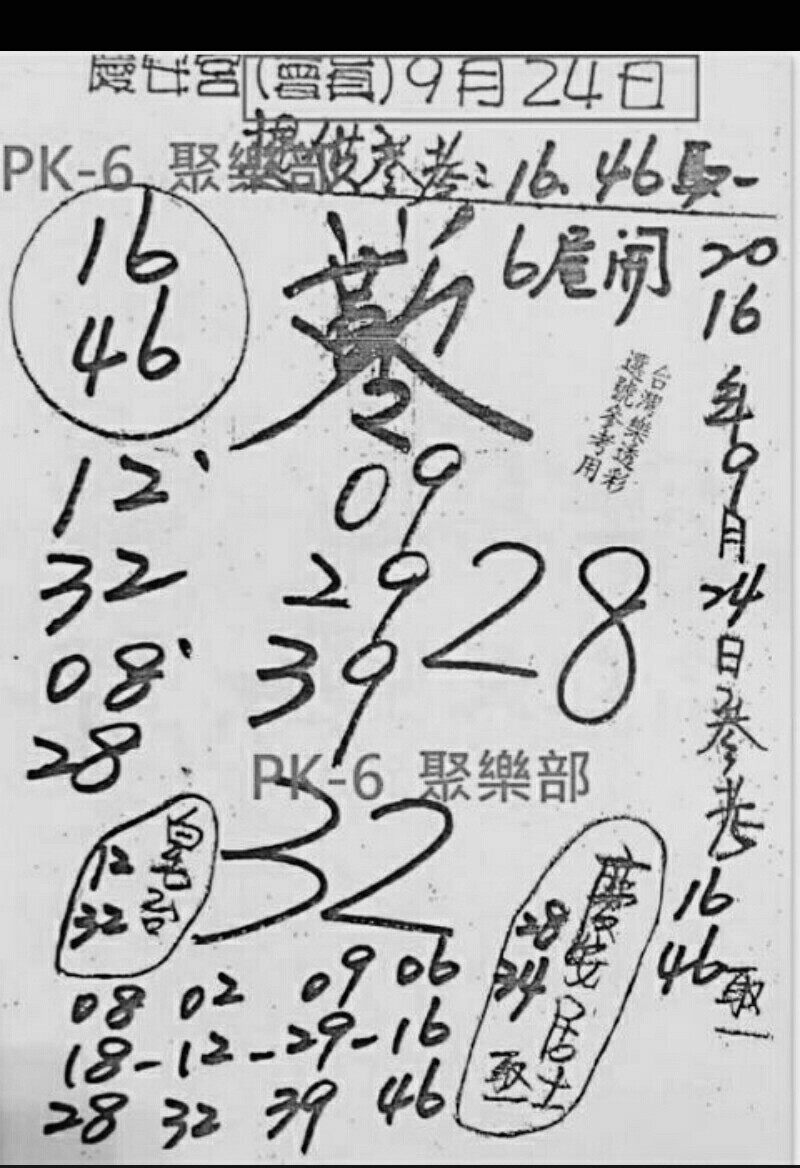 慶安宮(會員)9月24日
提供參考:16.46取一
PK-6 聚樂部
16
46
6尾開
2016年9月24日參考16 46取一
台灣樂透彩
選號參考用
2
12
32
08
28
09
29
39
28
PK-6 聚樂部
32
12
32
慶安居士
28
34
取一
08 02 09 06
18-12-29-16
28 32 39 46